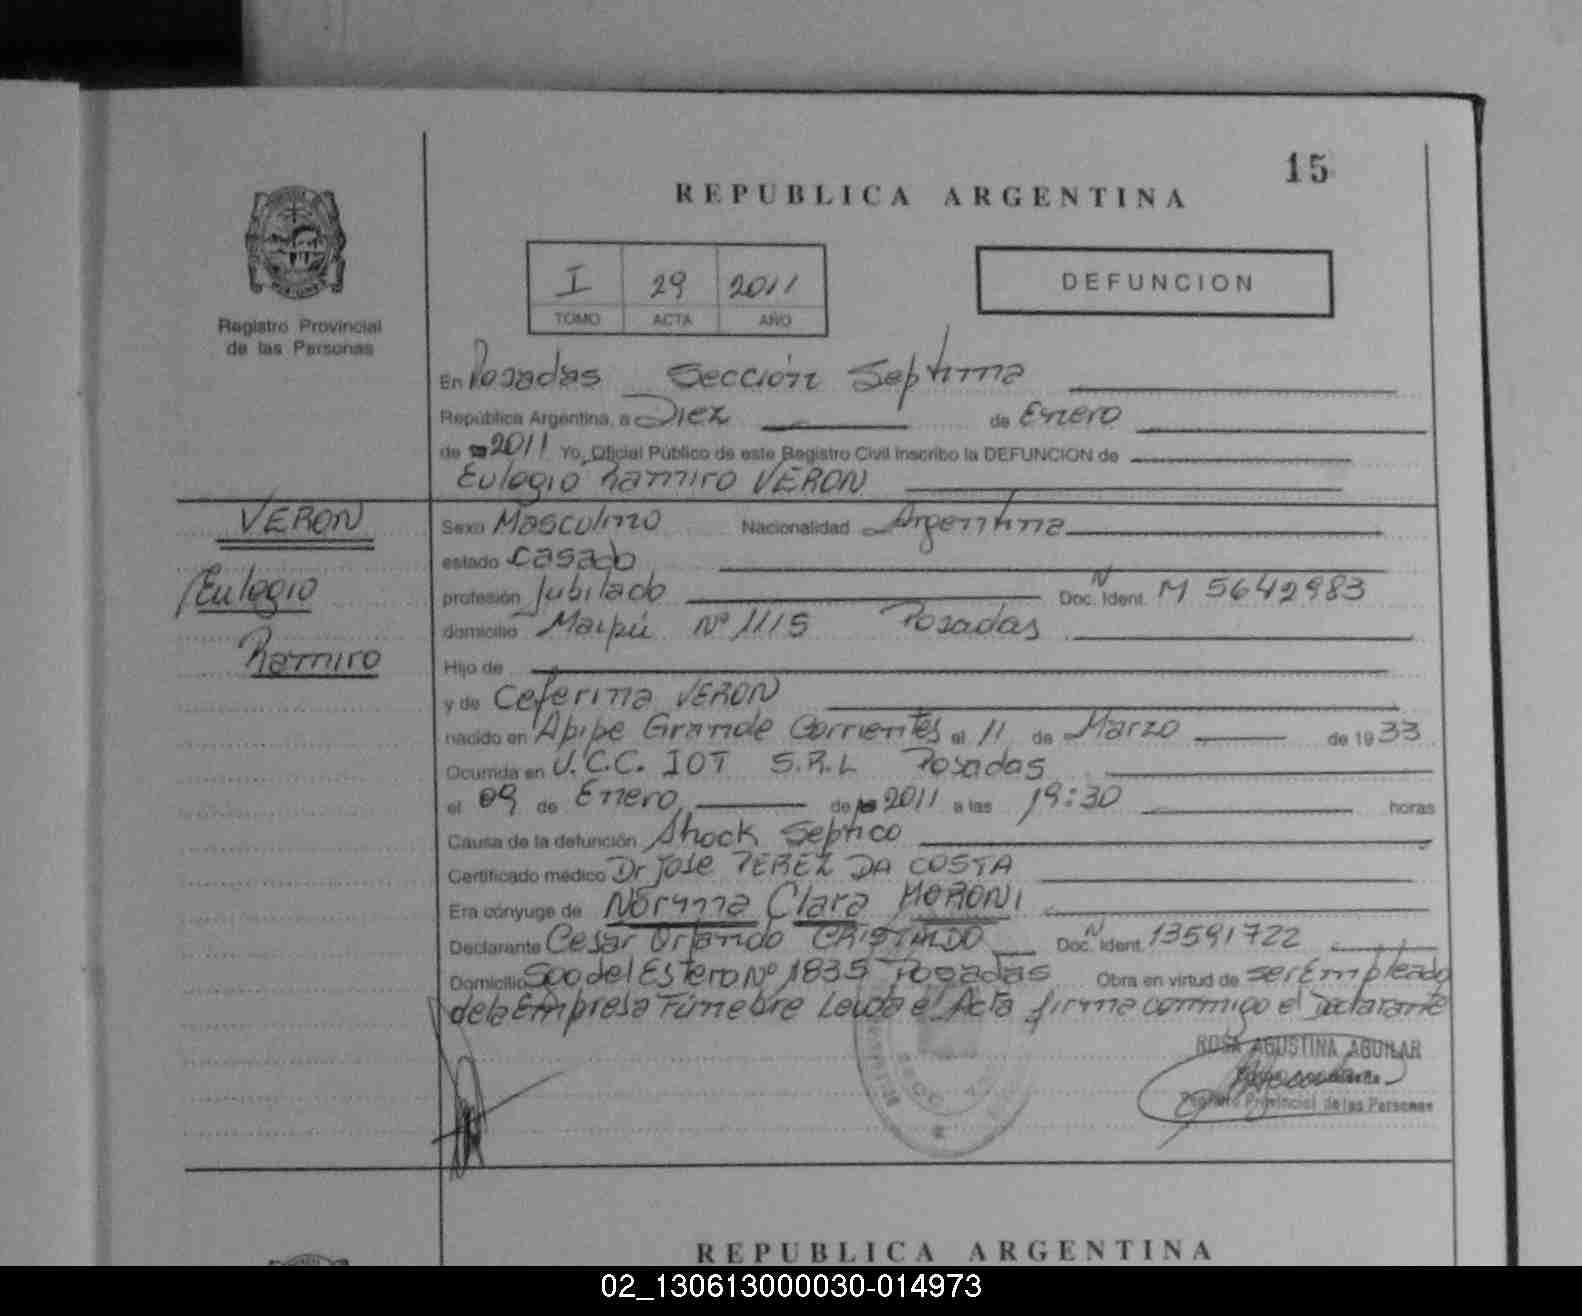 15
REPUBLICA ARGENTINA
I 29 2011
TOMO ACTA AÑO
DEFUNCION
Registro Provincial
de las Personas
En Posadas Sección Septima
República Argentina, a Diez de Enero
de 2011 Yo, Oficial Público de este Registro Civil inscribo la DEFUNCION de
Eulogio Ramiro VERON
VERON
Eulogio
Ramiro
Sexo Masculino Nacionalidad Argentina
estado Casado
profesión Jubilado Doc. Ident. M 5642983
domicilio Maipú Nº 1115 Posadas
Hijo de
y de Ceferina VERON
nacido en Apipe Grande Corrientes el 11 de Marzo de 1933
Ocurrida en U.C.C. IOT S.R.L Posadas
el 09 de Enero de 2011 a las 19:30 horas
Causa de la defunción Shock Septico
Certificado médico Dr Jose PEREZ DA COSTA
Era cónyuge de Norma Clara MORONI
Declarante Cesar Orlando CRISTALDO Doc. Ident. 13591722
Domicilio Sgo del Estero Nº 1835 Posadas Obra en virtud de ser Empleado
de la Empresa Funebre Leida el Acta firma conmigo el Declarante
ROSA AGUSTINA AGUILAR
Registro Provincial de las Personas
REPUBLICA ARGENTINA
02_130613000030-014973